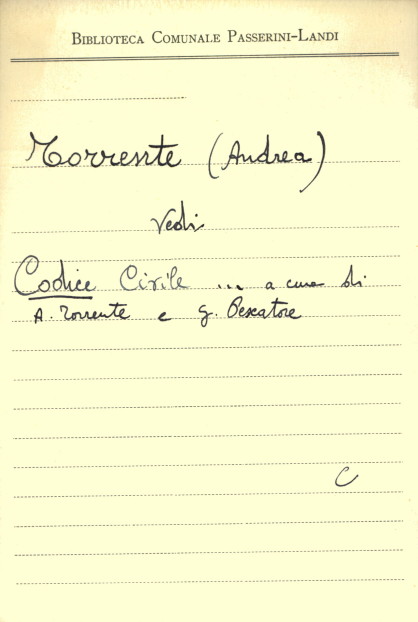 BIBLIOTECA COMUNALE PASSERINI-LANDI
Torrente (Andrea)
Vedi
Codice Civile ... a cura di
A. Torrente e G. Pescatore
C